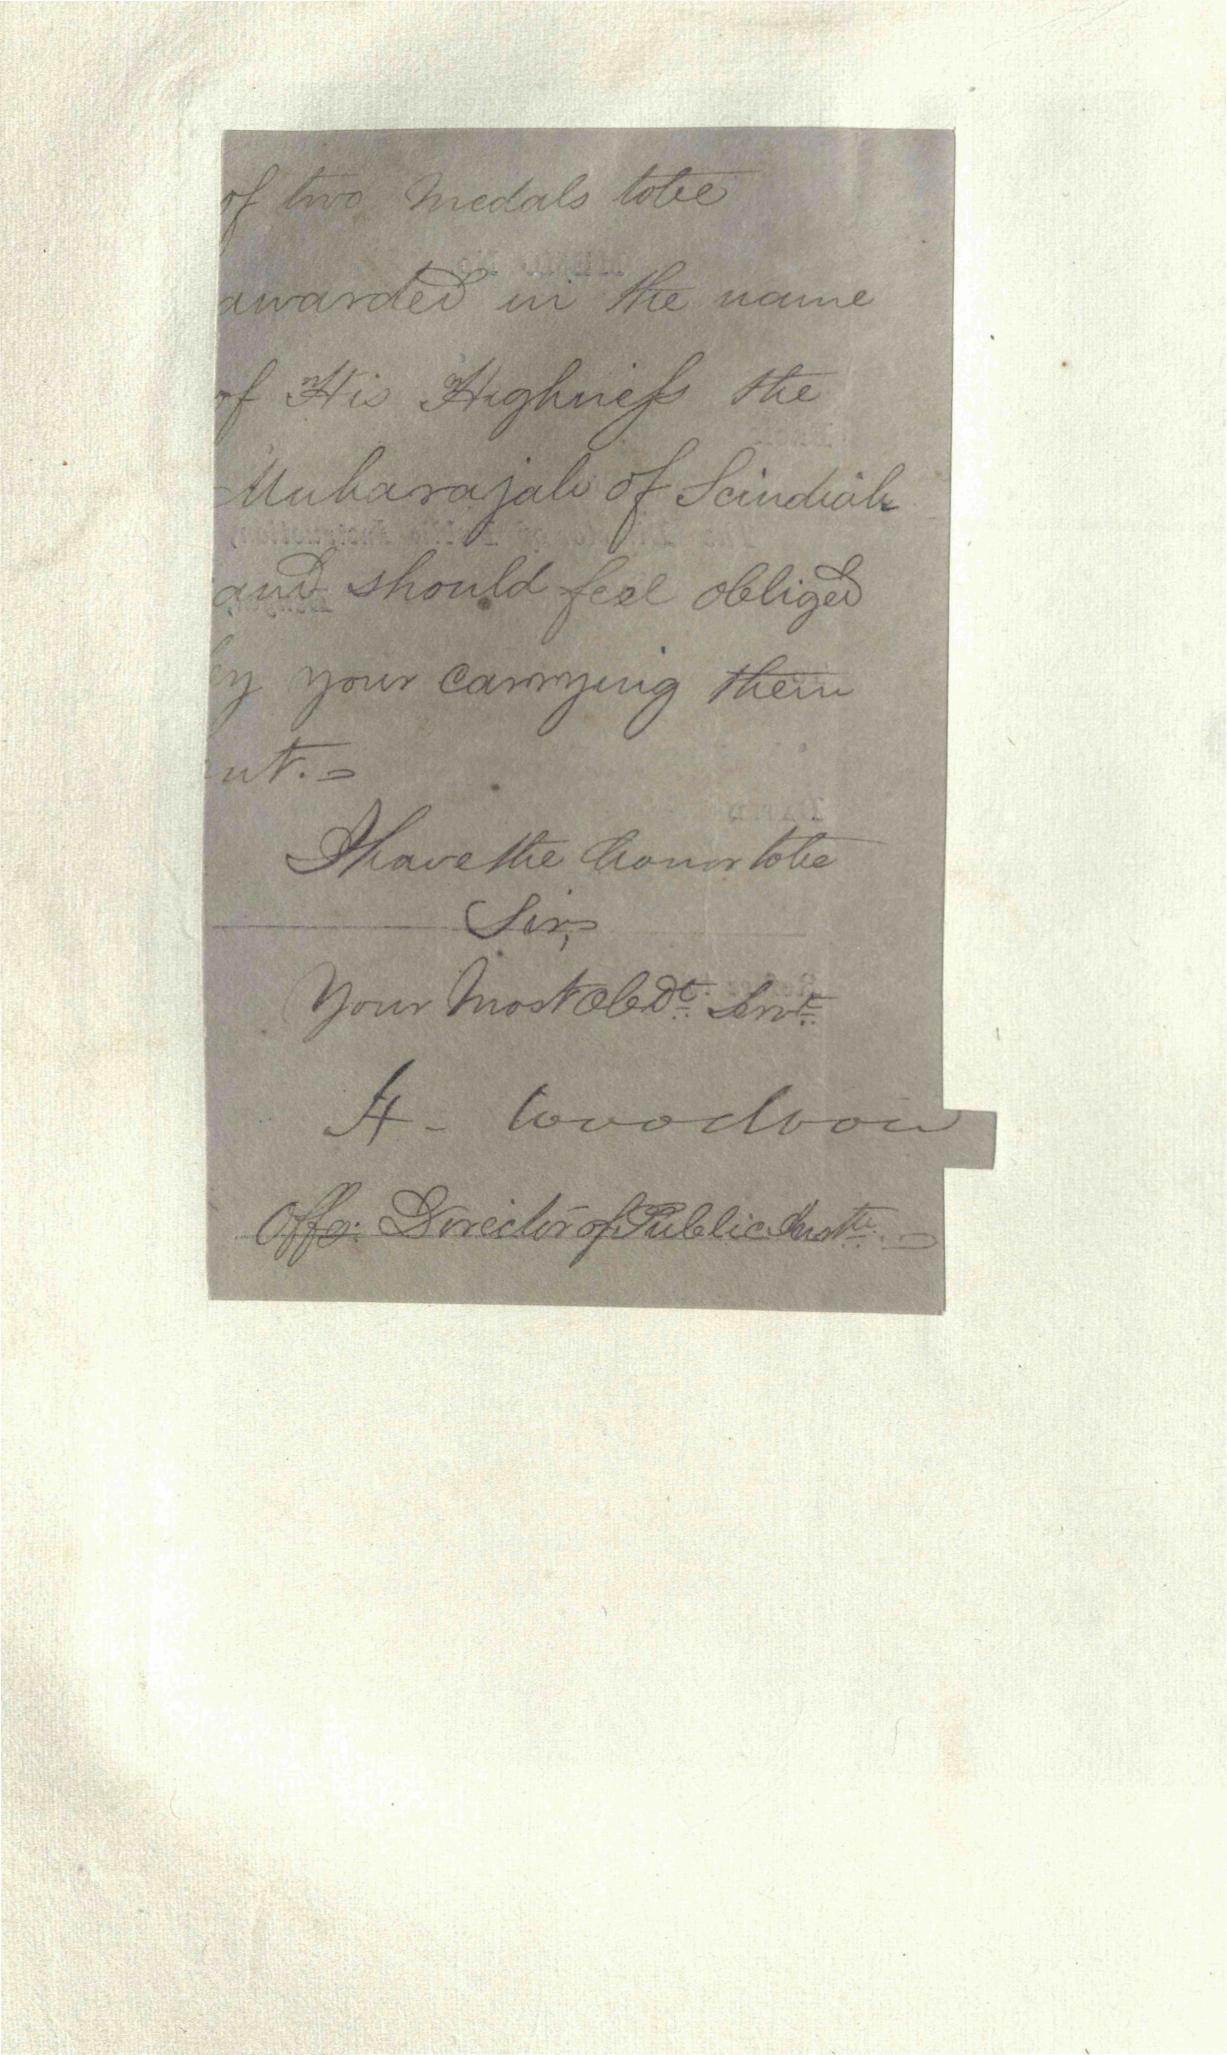 of two Medals to be
awarded in the name
of His Highness the
Muharajah of Scindiah
and should feel obliged
by your carrying them
out. =
I have the honor to be
Sir,
Your Most Obdt. Servt.
H. Woodrow
Offg. Director of Public Instn.